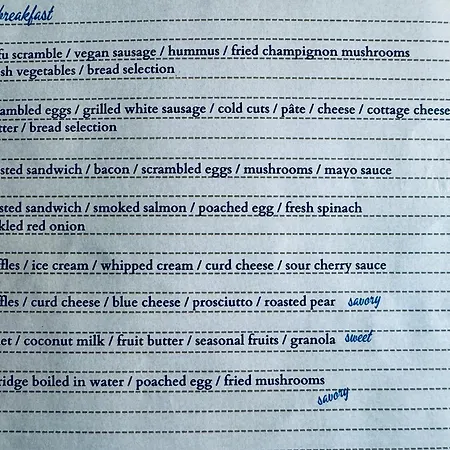 breakfast
fu scramble / vegan sausage / hummus / fried champignon mushrooms
sh vegetables / bread selection
ambled eggs / grilled white sausage / cold cuts / pâte / cheese / cottage cheese
tter / bread selection
sted sandwich / bacon / scrambled eggs / mushrooms / mayo sauce
sted sandwich / smoked salmon / poached egg / fresh spinach
kled red onion
ffles / ice cream / whipped cream / curd cheese / sour cherry sauce
ffles / curd cheese / blue cheese / prosciutto / roasted pear savory
let / coconut milk / fruit butter / seasonal fruits / granola sweet
ridge boiled in water / poached egg / fried mushrooms
savory